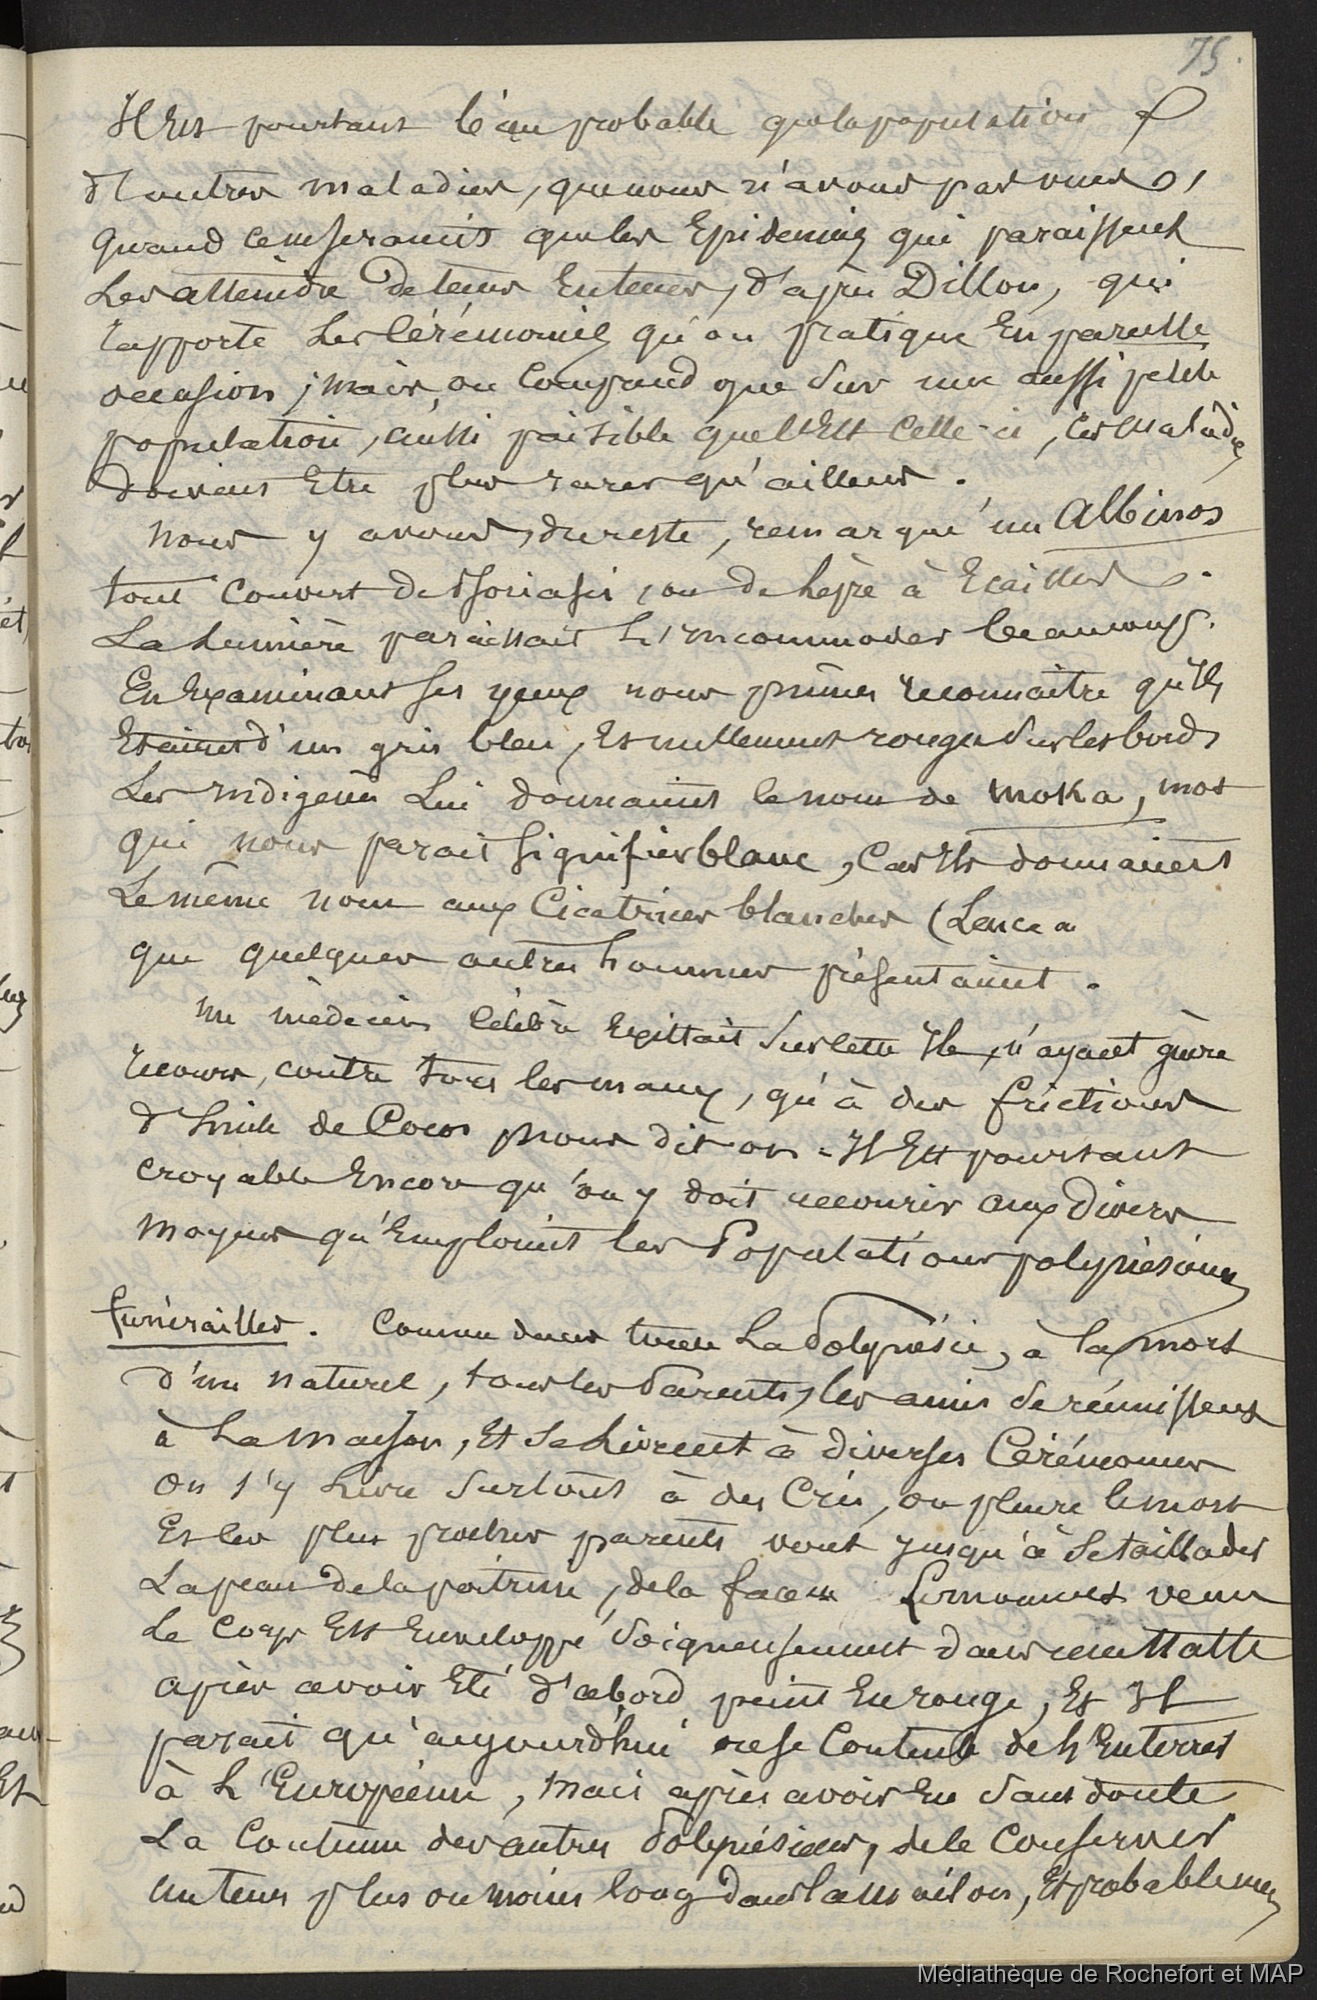 75.
Il Est pourtant bien probable que la population a
d'autres maladies, que nous n'avons pas vues,
quand ce ne seraient que les Epidemies qui paraissent
Les atteindre de tems En tems, d'après Dillon, qui
rapporte Les Cérémonies qu'on pratique En pareille
occasion ; mais, on Comprend que sur une aussi petite
population, aussi paisible que l'Est celle-ci, les maladies
doivent Etre plus rares qu'ailleurs.
Nous y avons, du reste, remarqué un Albinos
tout Couvert de Psoriasis, ou de Lèpre à Ecailles.
La Lumière paraissait L'incommoder beaucoup.
En Examinant ses yeux nous pûmes reconnaitre qu'Ils
Etaient d'un gris bleu, Et nullement rouges sur les bords
Les indigènes Lui donnaient le nom de Moka, mot
qui nous parait signifier blanc, Car Ils donnaient
Le même nom aux Cicatrices blanches (Leuce a
que quelques autres hommes présentaient.
Un médecin célèbre Existait sur cette Ile, n'ayant guère
recours, contre tous les maux, qu'à des frictions
d'huile de Cocos nous dit on. Il Est pourtant
croyable Encore qu'on y doit recourir aux divers
moyens qu'Emploient les Populations polynésiennes
funérailles. Comme dans toute La Polynésie, à la mort
d'un naturel, tous les Parents, les amis se réunissent
à La maison, Et se Livrent à diverses Cérémonies
On s'y Livre surtout à des Cris, on pleure le mort
Et les plus proches parents vont jusqu'à se taillader
La peau de la poitrine, de la face. Le moment venu
Le Corps Est Enveloppé soigneusement dans une Natte
après avoir Eté d'abord peint En rouge, Et Il
parait qu'aujourd'hui on se Contente de L'Enterrer
à L'Européenne, mais après avoir Eu sans doute
La Coutume des autres Polynésiens, de le Conserver
un tems plus ou moins long dans la maison, Et probablement
Médiathèque de Rochefort et MAP